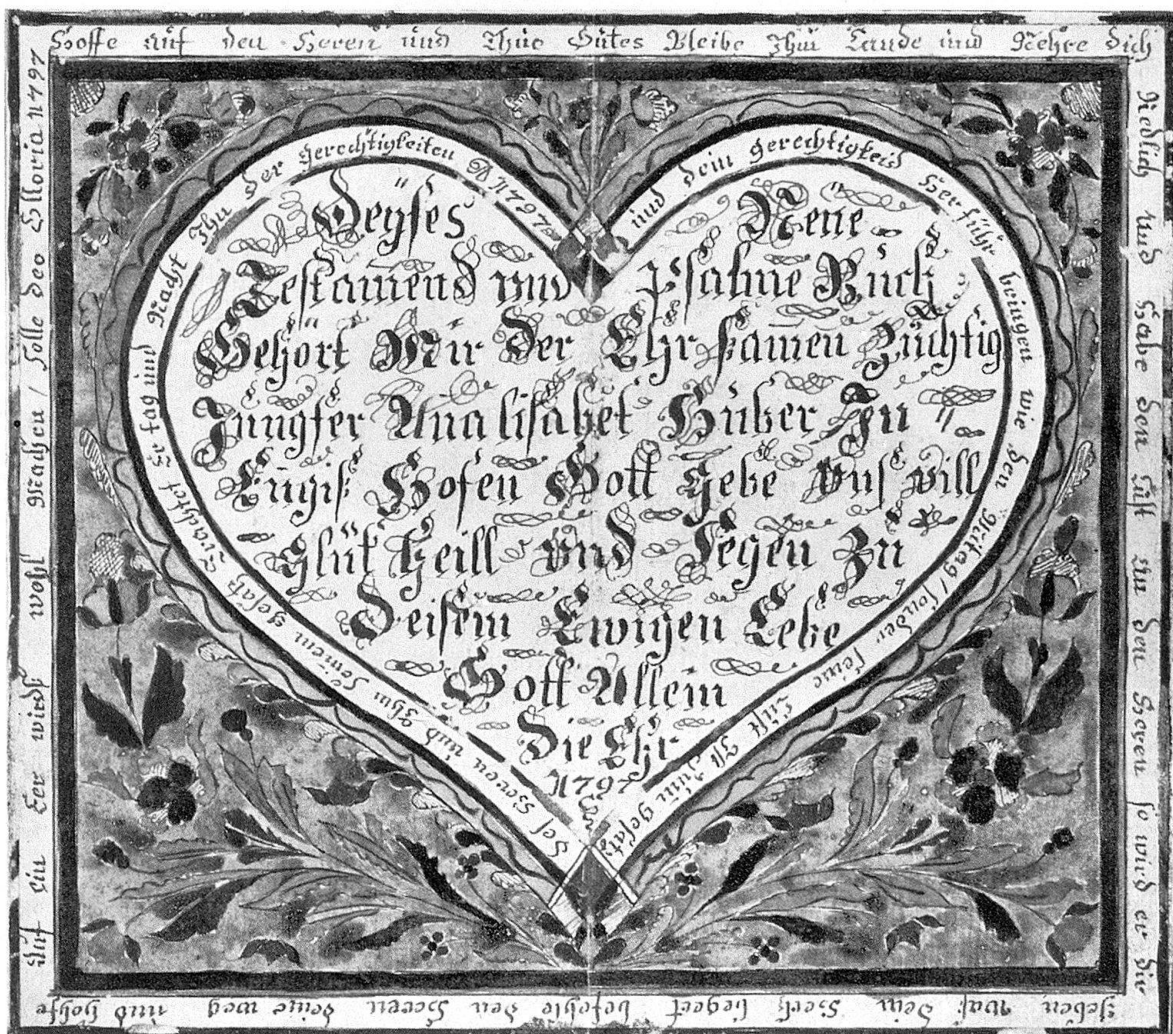 Hoffe auf den Heren und Thue Gutes Bleibe Ihm Lande und Nehre dich
Redlich und Habe den Lust an den Heren so wird er dir
geben waß dein Hertz begert befehle den Heren deine weg und hoffe
auf ein Eer wirdß wohl Machen / Solle deo Gloria 11797
und dein gerechtigkeid Herführ bringen wie den Mittag / sonder seine Lust Ist Zum gesatz
des Heren und Thun seinem gesatz Trachtet Er tag und Nacht Thu der gerechtigkeiten 11797
Deyses " Neue
Testamend und Psalme Buch
Gehört Mir Der Ehrsamen Züchtig
Jungfer Analisabet Huber Zu "
Gott gebe Uns vill
Glük Heill und Segen Zu
Deisem Ewigen Lebe
Gott Allein
Die Ehr
11797